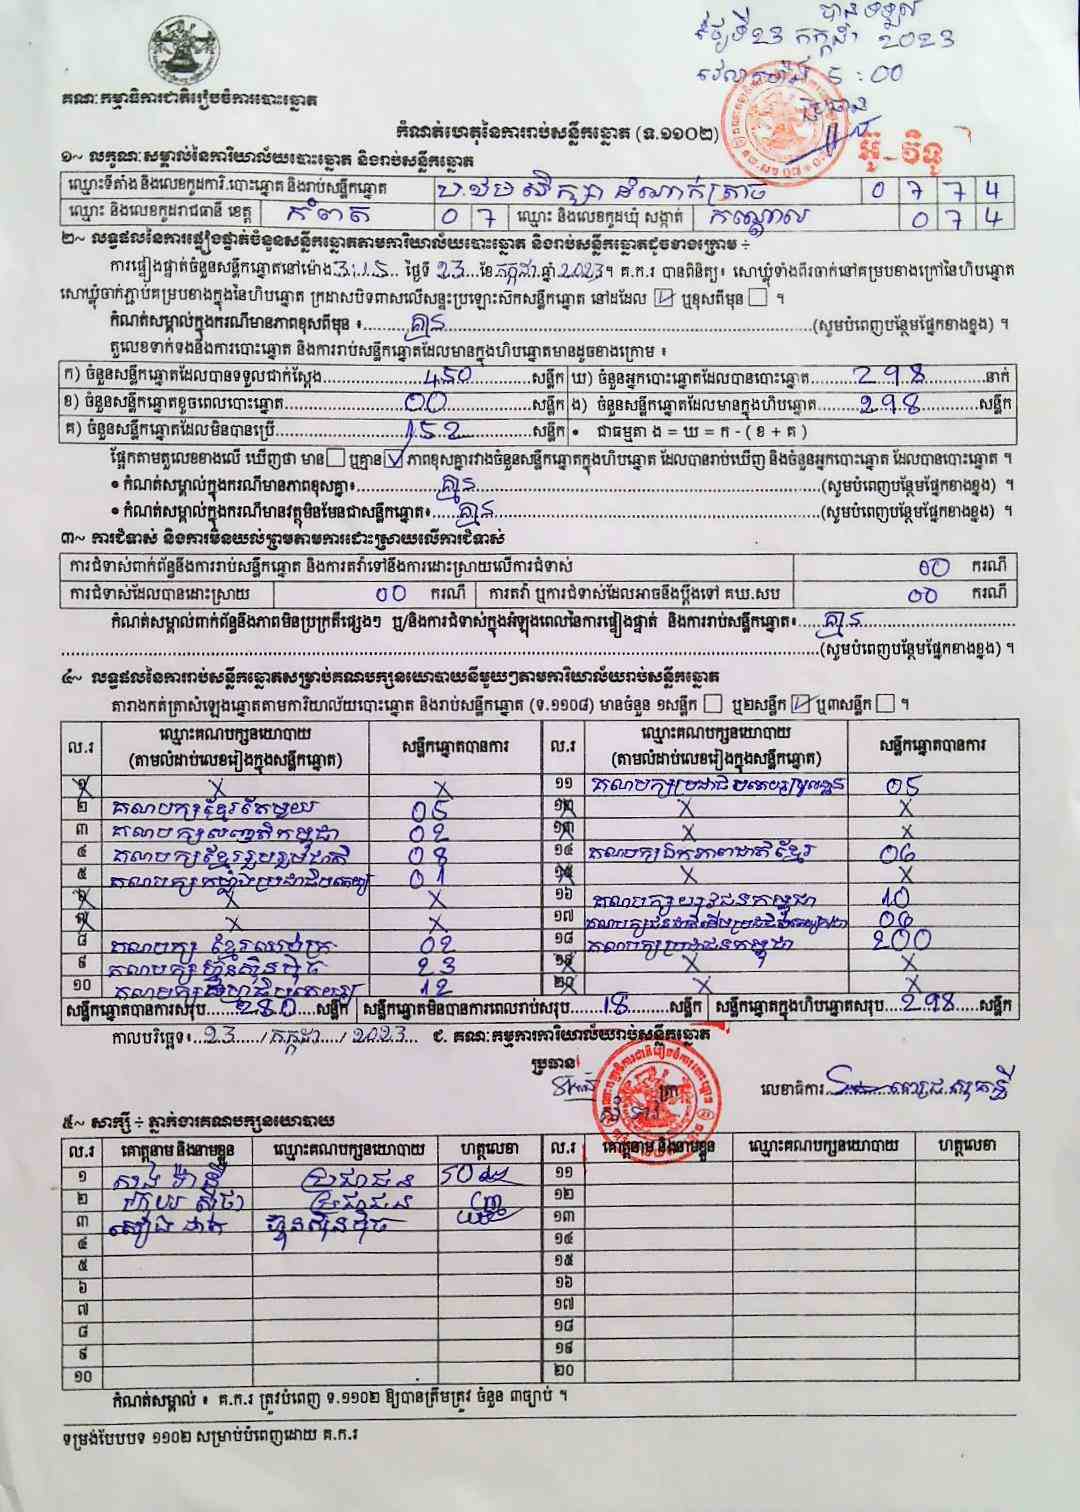 បានទទួល
ថ្ងៃទី23 កក្កដា 2023
វេលាម៉ោង 5 : 00
ប្រធាន
អ៊ូ - រិទ្ធ
គណៈកម្មាធិការជាតិរៀបចំការបោះឆ្នោត
កំណត់ហេតុនៃការរាប់សន្លឹកឆ្នោត (ទ.១១០២)
១~ លក្ខណៈសម្គាល់នៃការិយាល័យបោះឆ្នោត និងរាប់សន្លឹកឆ្នោត
ឈ្មោះទីតាំង និងលេខកូដការិ.បោះឆ្នោត និងរាប់សន្លឹកឆ្នោត ប.ឋមសិក្សា ដំណាក់ត្រាច 0 7 7 4
ឈ្មោះ និងលេខកូដរាជធានី ខេត្ត កំពត 0 7 ឈ្មោះ និងលេខកូដឃុំ សង្កាត់ 0 7 4
២~ លទ្ធផលនៃការផ្ទៀងផ្ទាត់ចំនួនសន្លឹកឆ្នោតតាមការិយាល័យបោះឆ្នោត និងរាប់សន្លឹកឆ្នោតដូចខាងក្រោម ÷
ការផ្ទៀងផ្ទាត់ចំនួនសន្លឹកឆ្នោតនៅម៉ោង 3:15 ថ្ងៃទី 23 ខែ កក្កដា ឆ្នាំ 2023។ គ.ក.រ បានពិនិត្យ៖ សោឃ្លុំទាំងពីរចាក់នៅគម្របខាងក្រៅនៃហិបឆ្នោត
សោឃ្លុំចាក់ភ្ជាប់គម្របខាងក្នុងនៃហិបឆ្នោត ក្រដាសបិទពាសលើសន្ទះប្រឡោះស៊កសន្លឹកឆ្នោត នៅដដែល ☑ ឬខុសពីមុន ☐ ។
កំណត់សម្គាល់ក្នុងករណីមានភាពខុសពីមុន ៖ គ្មាន (សូមបំពេញបន្ថែមផ្នែកខាងខ្នង) ។
តួលេខទាក់ទងនឹងការបោះឆ្នោត និងការរាប់សន្លឹកឆ្នោតដែលមានក្នុងហិបឆ្នោតមានដូចខាងក្រោម ៖
ក) ចំនួនសន្លឹកឆ្នោតដែលបានទទួលជាក់ស្តែង 450 សន្លឹក ឃ) ចំនួនអ្នកបោះឆ្នោតដែលបានបោះឆ្នោត 298 នាក់
ខ) ចំនួនសន្លឹកឆ្នោតខូចពេលបោះឆ្នោត 00 សន្លឹក ង) ចំនួនសន្លឹកឆ្នោតដែលមានក្នុងហិបឆ្នោត 298 សន្លឹក
គ) ចំនួនសន្លឹកឆ្នោតដែលមិនបានប្រើ 152 សន្លឹក • ជាធម្មតា ង = ឃ = ក - ( ខ + គ )
ផ្អែកតាមតួលេខខាងលើ ឃើញថា មាន ☐ ឬគ្មាន ☑ ភាពខុសគ្នារវាងចំនួនសន្លឹកឆ្នោតក្នុងហិបឆ្នោត ដែលបានរាប់ឃើញ និងចំនួនអ្នកបោះឆ្នោត ដែលបានបោះឆ្នោត ។
• កំណត់សម្គាល់ក្នុងករណីមានភាពខុសគ្នា៖ គ្មាន (សូមបំពេញបន្ថែមផ្នែកខាងខ្នង) ។
• កំណត់សម្គាល់ក្នុងករណីមានវត្ថុមិនមែនជាសន្លឹកឆ្នោត៖ គ្មាន (សូមបំពេញបន្ថែមផ្នែកខាងខ្នង) ។
៣~ ការជំទាស់ និងការមិនយល់ព្រមតាមការដោះស្រាយលើការជំទាស់
ការជំទាស់ពាក់ព័ន្ធនឹងការរាប់សន្លឹកឆ្នោត និងការតវ៉ាទៅនឹងការដោះស្រាយលើការជំទាស់ 00 ករណី
ការជំទាស់ដែលបានដោះស្រាយ 00 ករណី ការតវ៉ា ឬការជំទាស់ដែលអាចនឹងប្តឹងទៅ គឃ.សប 00 ករណី
កំណត់សម្គាល់ពាក់ព័ន្ធនឹងភាពមិនប្រក្រតីផ្សេងៗ ឬ/និងការជំទាស់ក្នុងអំឡុងពេលនៃការផ្ទៀងផ្ទាត់ និងការរាប់សន្លឹកឆ្នោត៖ គ្មាន
(សូមបំពេញបន្ថែមផ្នែកខាងខ្នង) ។
៤~ លទ្ធផលនៃការរាប់សន្លឹកឆ្នោតសម្រាប់គណបក្សនយោបាយនីមួយៗតាមការិយាល័យរាប់សន្លឹកឆ្នោត
តារាងកត់ត្រាសំឡេងឆ្នោតតាមការិយាល័យបោះឆ្នោត និងរាប់សន្លឹកឆ្នោត (ទ.១១០៨) មានចំនួន ១សន្លឹក ☐ ឬ២សន្លឹក ☑ ឬ៣សន្លឹក ☐ ។
ល.រ ឈ្មោះគណបក្សនយោបាយ (តាមលំដាប់លេខរៀងក្នុងសន្លឹកឆ្នោត) សន្លឹកឆ្នោតបានការ ល.រ ឈ្មោះគណបក្សនយោបាយ (តាមលំដាប់លេខរៀងក្នុងសន្លឹកឆ្នោត) សន្លឹកឆ្នោតបានការ
១ X X ១១ 05
២ គណបក្សខ្មែរតែមួយ 05 ១២ X X
៣ គណបក្សសញ្ជាតិកម្ពុជា 02 ១៣ X X
៤ គណបក្សខ្មែររួបរួមជាតិ 08 ១៤ គណបក្សឯកភាពជាតិខ្មែរ 06
៥ គណបក្សកម្លាំងប្រជាធិបតេយ្យ 01 ១៥ X X
៦ X X ១៦ គណបក្សយុវជនកម្ពុជា 10
៧ X X ១៧ 06
៨ គណបក្ស ខ្មែរឈប់ក្រ 02 ១៨ គណបក្សប្រជាជនកម្ពុជា 200
៩ គណបក្សហ៊្វុនស៊ិនប៉ិច 23 ១៩ X X
១០ 12 ២០ X X
សន្លឹកឆ្នោតបានការសរុប 280 សន្លឹក សន្លឹកឆ្នោតមិនបានការពេលរាប់សរុប 18 សន្លឹក សន្លឹកឆ្នោតក្នុងហិបឆ្នោតសរុប 298 សន្លឹក
កាលបរិច្ឆេទ៖ 23 / កក្កដា / 2023 ជ. គណៈកម្មការការិយាល័យរាប់សន្លឹកឆ្នោត
ប្រធាន
លេខាធិការ
៥~ សាក្សី ÷ ភ្នាក់ងារគណបក្សនយោបាយ
ល.រ គោត្តនាម និងនាមខ្លួន ឈ្មោះគណបក្សនយោបាយ ហត្ថលេខា ល.រ គោត្តនាម និងនាមខ្លួន ឈ្មោះគណបក្សនយោបាយ ហត្ថលេខា
១ ប្រជាជន ១១
២ ប្រជាជន ១២
៣ ហ៊្វុនស៊ិនប៉ិច ១៣
៤ ១៤
៥ ១៥
៦ ១៦
៧ ១៧
៨ ១៨
៩ ១៩
១០ ២០
កំណត់សម្គាល់ ៖ គ.ក.រ ត្រូវបំពេញ ទ.១១០២ ឱ្យបានត្រឹមត្រូវ ចំនួន ៣ច្បាប់ ។
ទម្រង់បែបបទ ១១០២ សម្រាប់បំពេញដោយ គ.ក.រ